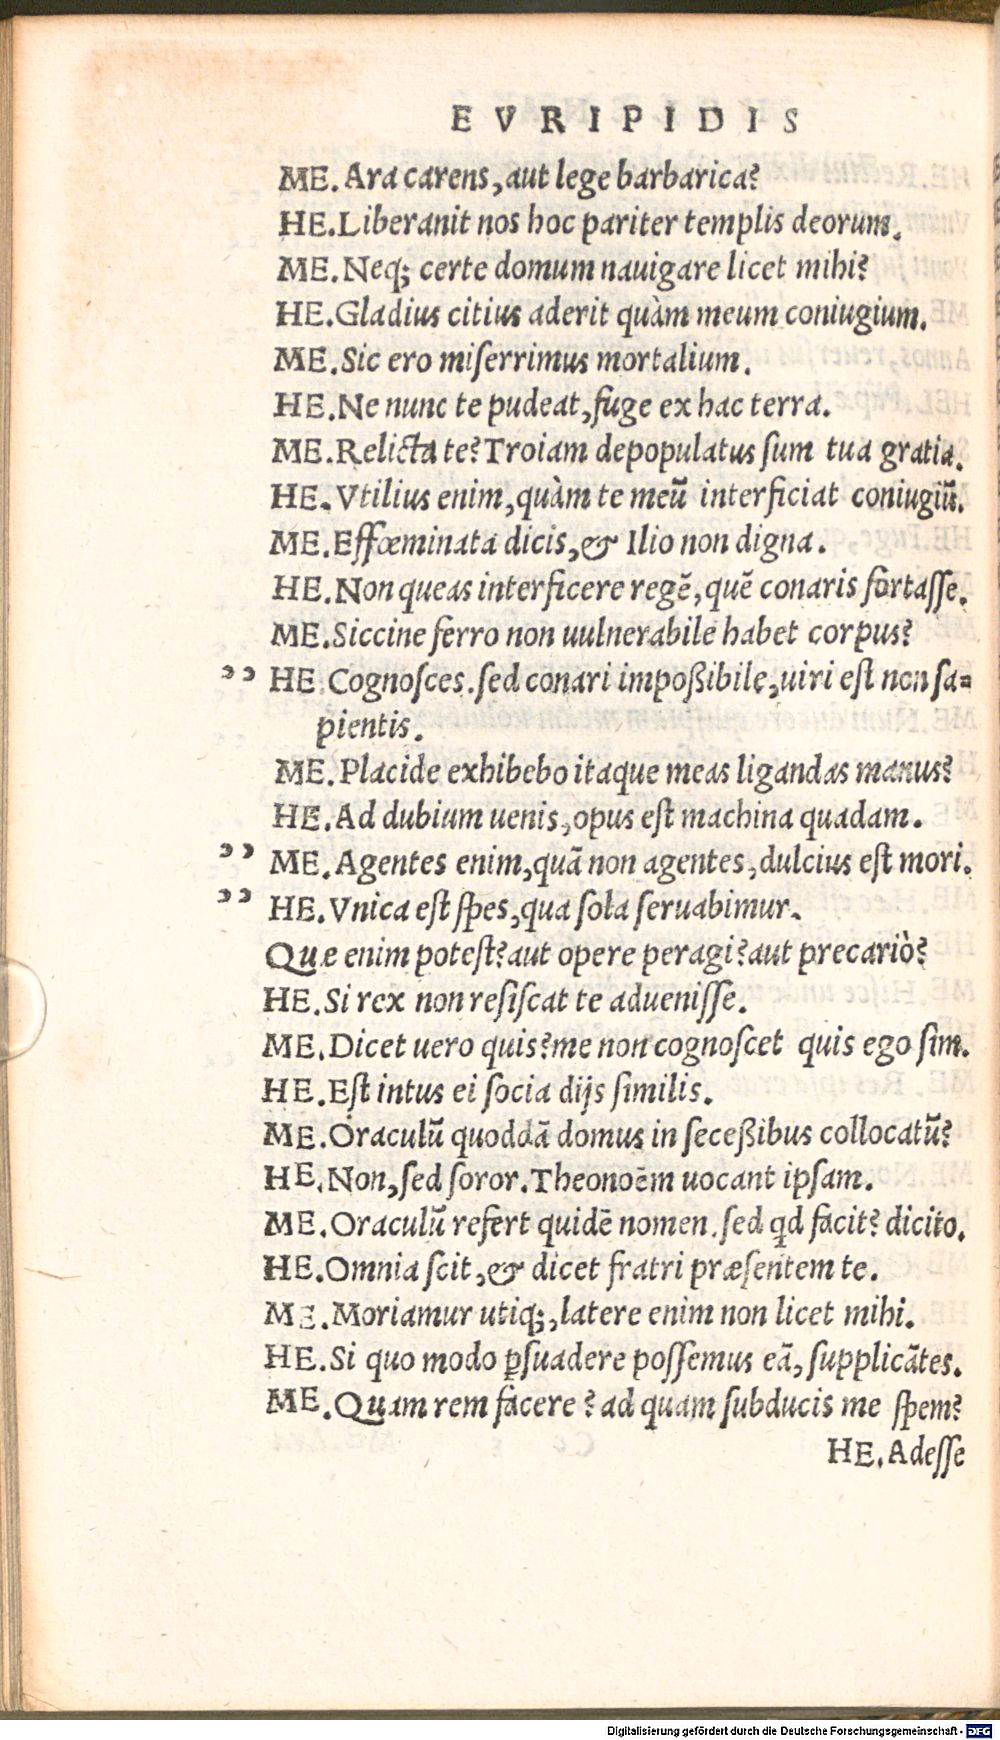 EVRIPIDIS
ME. Ara carens, aut lege barbarica?
HE. Liberanit nos hoc pariter templis deorum.
ME. Neq; certe domum nauigare licet mihi?
HE. Gladius citius aderit quàm meum coniugium.
ME. Sic ero miſerrimus mortalium.
HE. Ne nunc te pudeat, fuge ex hac terra.
ME. Relicta te? Troiam depopulatus ſum tua gratia.
HE. Vtilius enim, quàm te meū interficiat coniugiū.
ME. Effœminata dicis, & Ilio non digna.
HE. Non queas interficere regē, quē conaris fortaſſe.
ME. Siccine ferro non uulnerabile habet corpus?
”” HE. Cognoſces. ſed conari impoßibile, uiri eſt non ſa=
pientis.
ME. Placide exhibebo itaque meas ligandas manus?
HE. Ad dubium uenis, opus eſt machina quadam.
”” ME. Agentes enim, quā non agentes, dulcius eſt mori.
”” HE. Vnica eſt ſpes, qua ſola ſeruabimur.
Quæ enim poteſt? aut opere peragi? aut precariò?
HE. Si rex non reſiſcat te adueniſſe.
ME. Dicet uero quis? me non cognoſcet quis ego ſim.
HE. Eſt intus ei ſocia dijs ſimilis.
ME. Oraculū quoddā domus in ſeceßibus collocatū?
HE. Non, ſed ſoror. Theonoēm uocant ipſam.
ME. Oraculū refert quidē nomen. ſed qd facit? dicito.
HE. Omnia ſcit, & dicet fratri præſentem te.
ME. Moriamur utiq;, latere enim non licet mihi.
HE. Si quo modo ꝑſuadere poſſemus eā, ſupplicātes.
ME. Quam rem facere? ad quam ſubducis me ſpem?
HE. Adeſſe
Digitalisierung gefördert durch die Deutsche Forschungsgemeinschaft - DFG